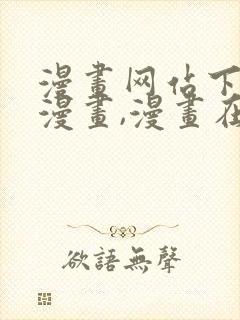 漫畫网佔下
漫畫,漫畫在
欲語無聲